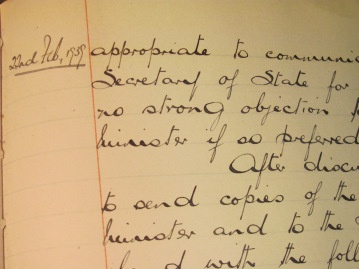 22nd Feb, 1939
appropriate to communi
Secretary of State for
no strong objection
Minister if so preferred
After discu
to send copies of the
Minister and to the
with the foll